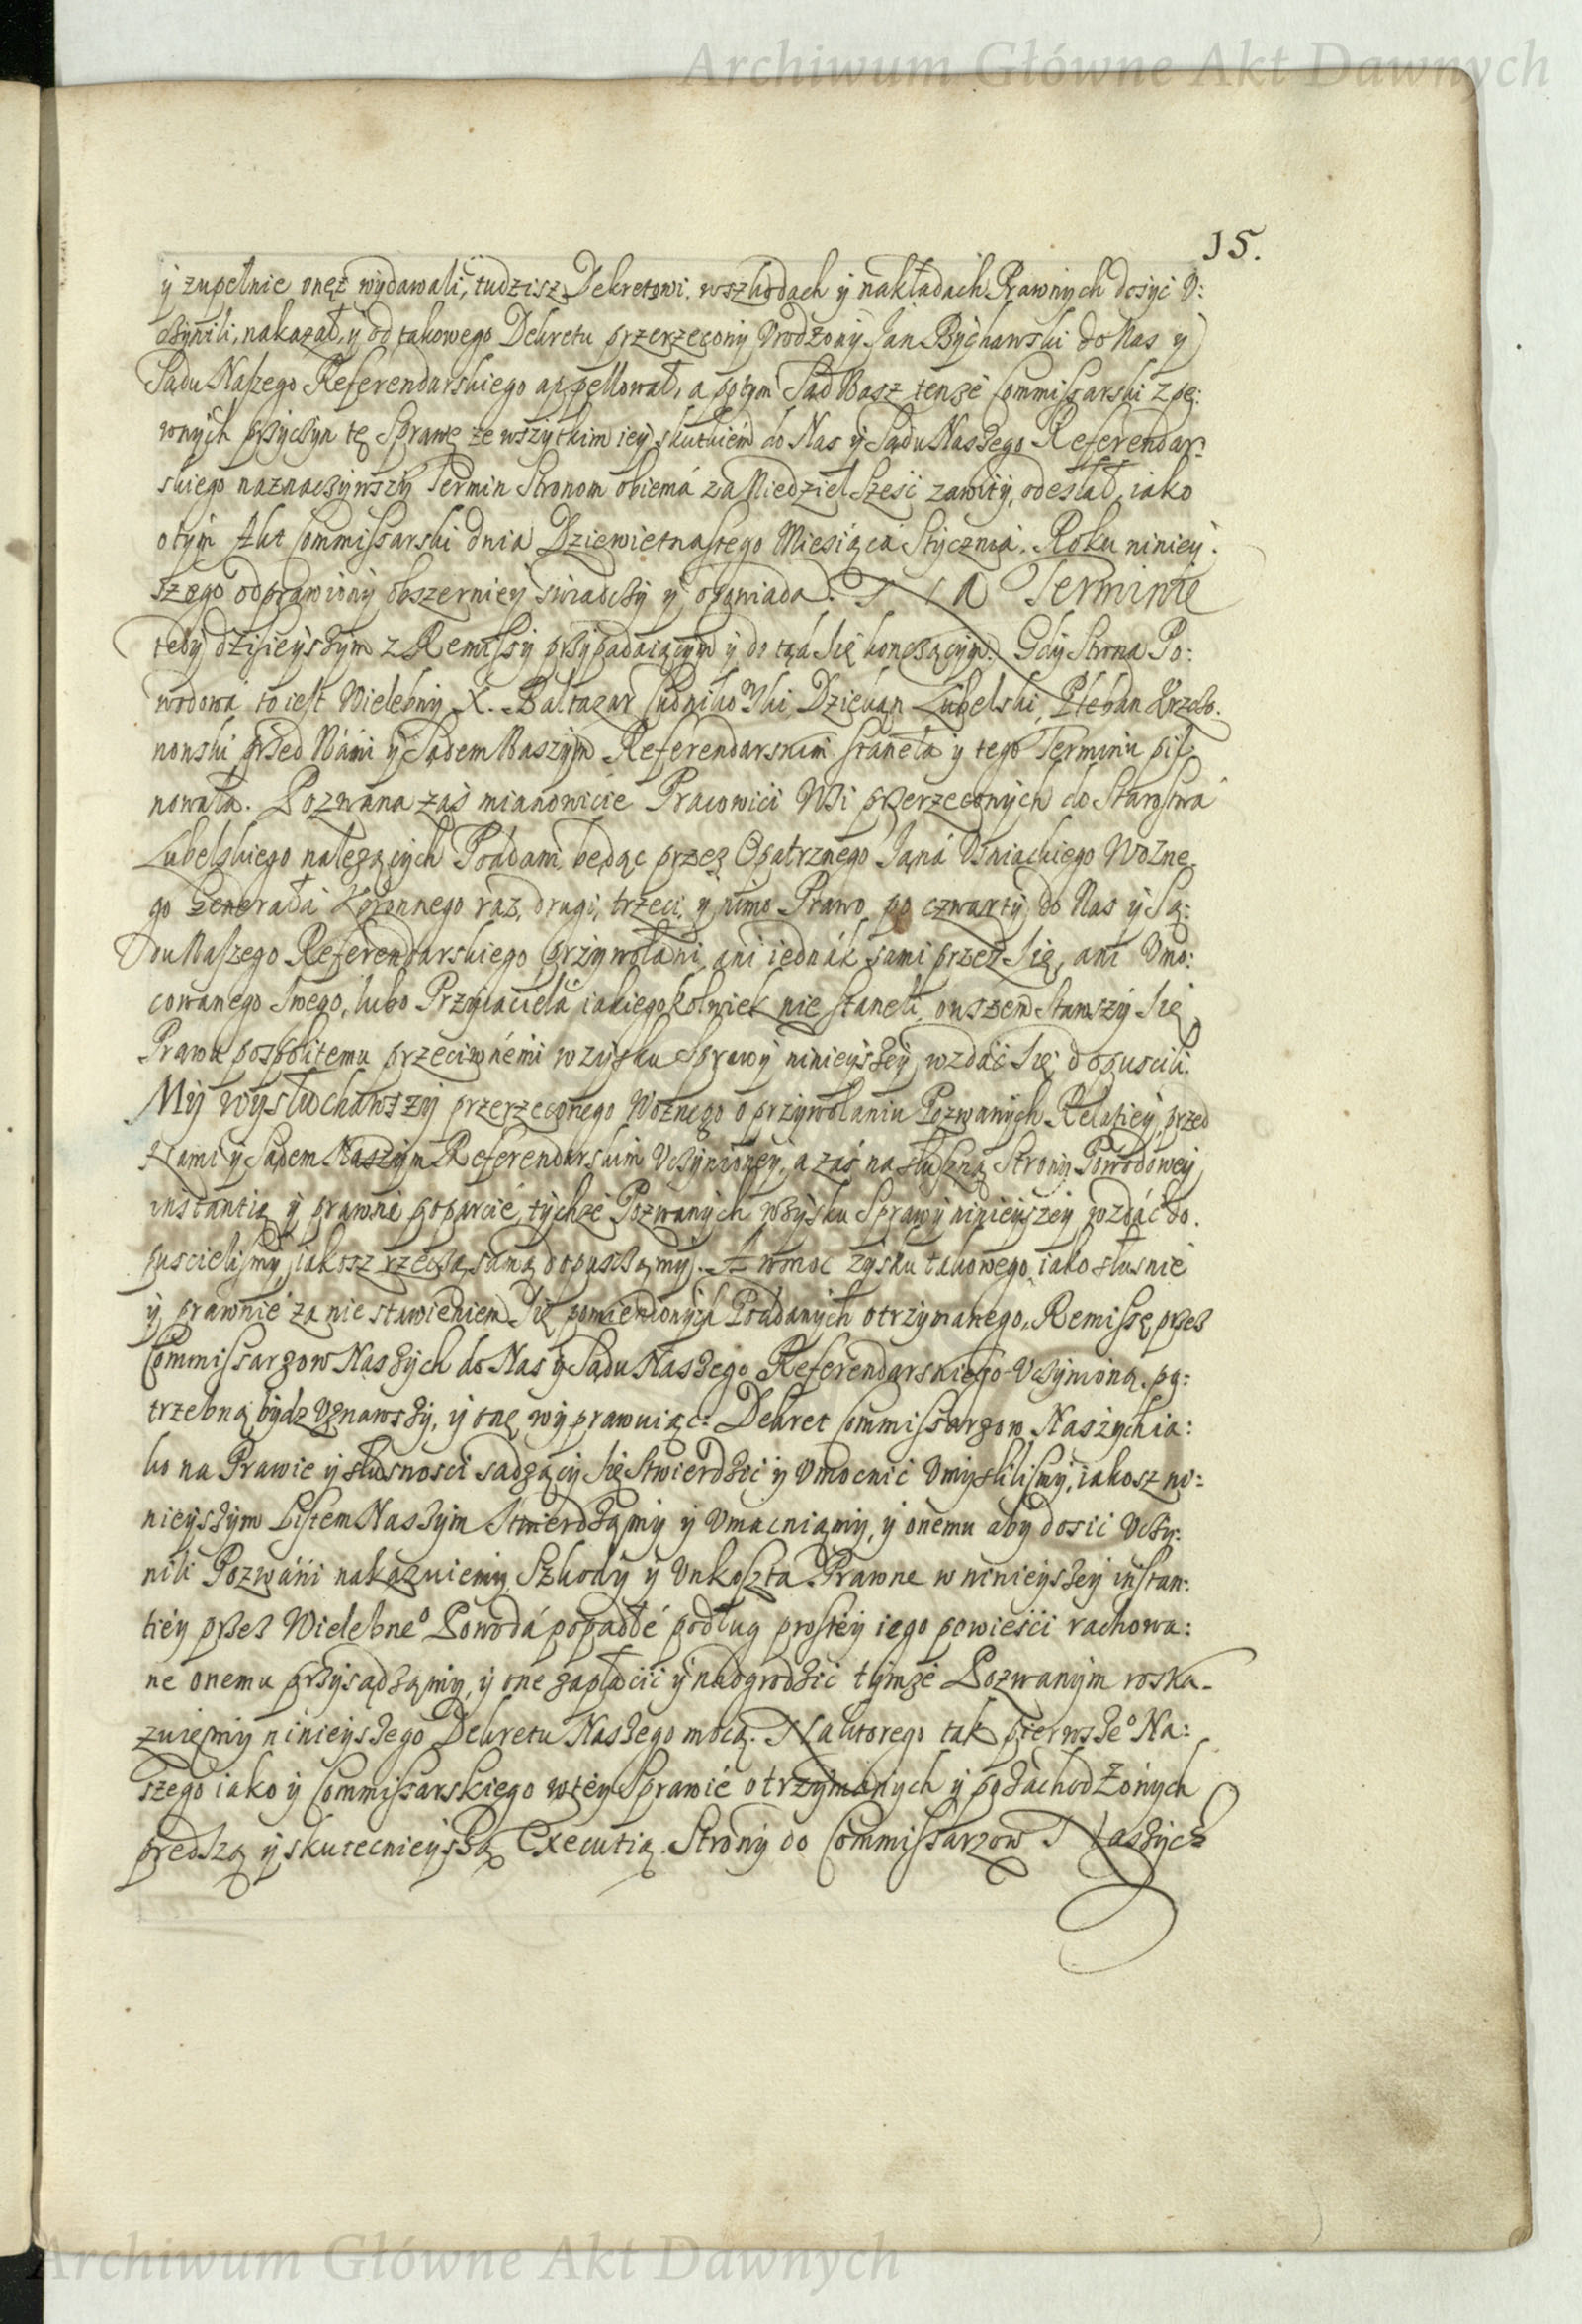 Archiwum Główne Akt Dawnych
15.
ÿ zupełnie onęż wÿdawali, tudzisz Dekretowi, wszkodach ÿ nakładach Prawnÿch dosÿć V:
czÿnili, nakazał, ÿ od takowego Dekretu przerzeconÿ Vrodzonÿ Jan Bÿchawski do Nas ÿ
Sądu Naszego Referendarskiego appellował, a potÿm Sąd Nasz tenże Commissarski z pe:
wnÿch przÿczÿn tę Sprawę ze wszÿtkim ieÿ skutkiem do Nas ÿ Sądu Naszego Referendar:
skiego naznaczÿwszÿ Termin Stronom obiemá za Niedziel Sześć zawitÿ, odesłał, iako
otÿm Akt Commissarski dnia Dziewietnastego Miesiąca Stÿcznia. Roku niniey:
szego odprawionÿ obszernieÿ świadczÿ ÿ opowiada. Na Terminie
tedÿ dzisieÿszÿm z Remissÿ przÿpadaiącÿm ÿ do tąd Się koncząçÿm. Gdÿ Strona Po:
wodowa to iest Wielebnÿ X. Baltazar Dziekan Lubelski, Pleban
nowski przed Nami ÿ Sądem Naszÿm Referendarskim stanęła ÿ tego Terminu pil:
nowała. Pozwana zaś mianowicie Pracowići Wsi przerzeconÿch do Starostwa
Lubelskiego należącÿch Poddani, będąc przez Opatrznego Jana Woźne:
go Generała Koronnego raz, drugi, trzeci, ÿ nimo Prawo po czwartÿ do Nas ÿ Są:
du Naszego Referendarskiego przÿwołani, ani iednák sami przez Się, ani Vmo:
cowanego Swego, lubo Przÿiaciela iakiegokolwiek nie stanęli, owszem Stawszÿ Się
Prawu pospolitemu przeciwnémi wzÿsku Sprawÿ ninieÿszeÿ wzdać Się dopuscili.
Mÿ wÿsłuchawszÿ przerzeconego Woźnego o przÿwołaniu Pozwanÿch Relatieÿ, przed
Nami ÿ Sądem Naszÿm Referendarskim Vczÿnioneÿ, a zaś na słuszną Stronÿ Powodoweÿ
instantią ÿ prawne poparcié, tÿchże Pozwanÿch wzÿsku Sprawÿ ninieÿszeÿ wzdáć do:
puscielismÿ, iakosz rzeczą samą dopuszczamÿ. A wmoc zÿsku takowego, iako słusnie
ÿ prawnie za nie stawieniem Się pomienionÿch Poddanÿch otrzÿmanego, Remissę przez
Commissarzow Naszÿch do Nas ÿ Sądu Naszego Referendarskiego Vczÿnioną, po:
trzebną bÿdz Vznawszÿ, ÿ onę wÿprawuiąc: Dekret Commissarzow Naszÿch ia:
ko na Prawie ÿ słusnosci sadzącÿ Się Stwierdzić ÿ Vmocnić Vmÿslilismÿ, iakosz ni:
nieÿszÿm Listem Naszÿm Stwierdzamÿ ÿ Vmacniamÿ, ÿ onemu abÿ dosić Vczÿ:
nili Pozwáni nakazuiemÿ, Szkodÿ ÿ Vnkoszta Prawne w ninieÿszeÿ instan:
tieÿ przez Wielebne° Powodá popadłé podług prosteÿ iego powieści rachowa:
ne onemu przÿsądzamÿ, ÿ one zapłacić ÿ nadgrodzić tÿmże Pozwanÿm roska-
zuiemÿ ninieÿszego Dekretu Naszego mocą. Na ktorego tak pierwsze° Na:
szego iako ÿ Commissarskiego wteÿ Sprawie otrzÿmanÿch ÿ pozáchodzonÿch
predszą ÿ skutecnieÿszą Executią. Stronÿ do Commissarzow Naszÿch
Archiwum Główne Akt Dawnych